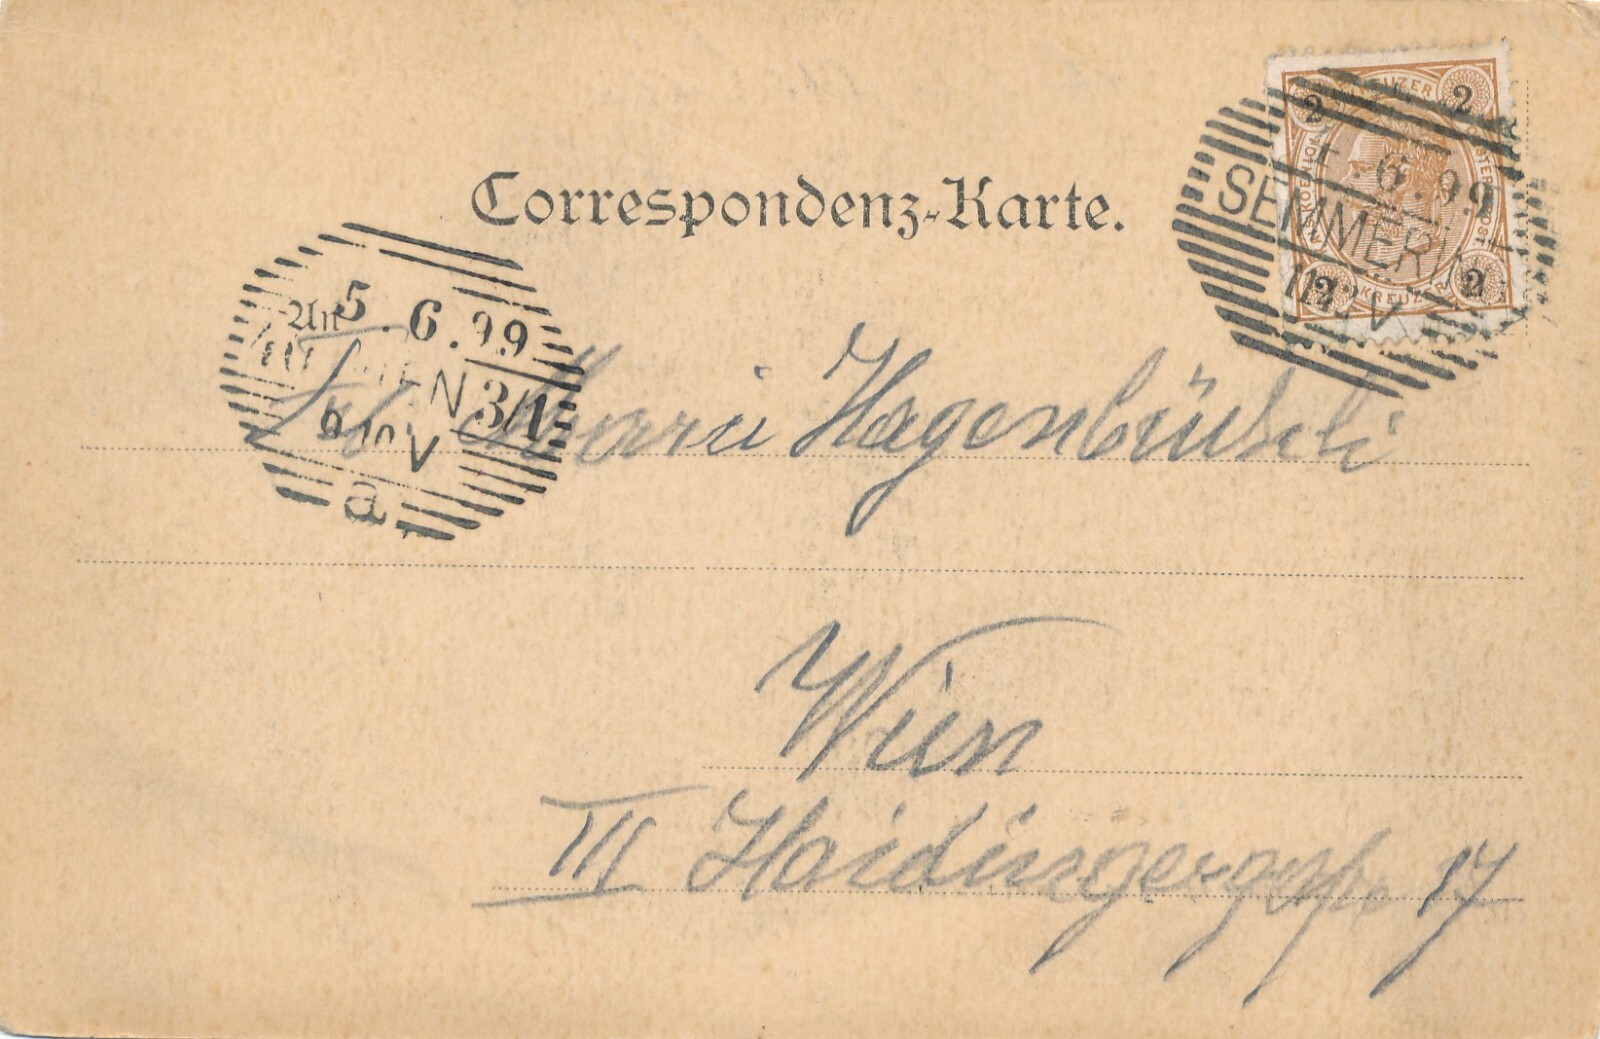 Correspondenz-Karte.
2 KREUZER 2
2 KREUZER 2
. 6. 99
SEMMERING
5. 6. 99
WIEN 3/1
V
a
Marie Hagenbüchli
Wien
III Haidingergasse 17